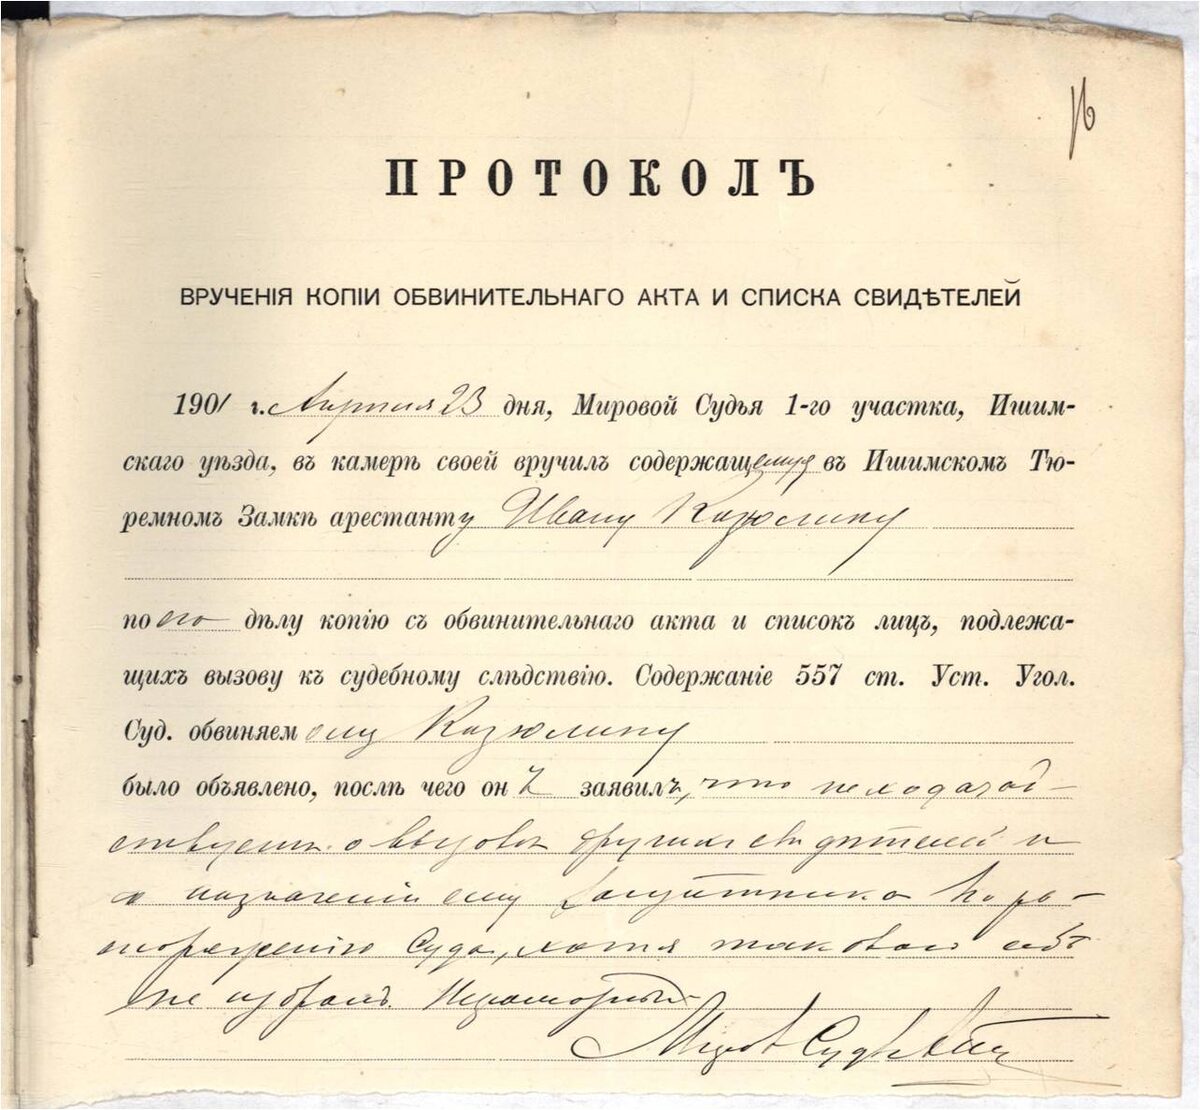 16
ПРОТОКОЛЪ
ВРУЧЕНІЯ КОПІИ ОБВИНИТЕЛЬНАГО АКТА И СПИСКА СВИДѢТЕЛЕЙ
1901 г. Апрѣля 23 дня, Мировой Судья 1-го участка, Ишим-
скаго уѣзда, въ камерѣ своей вручилъ содержащемуся въ Ишимскомъ Тю-
ремномъ Замкѣ арестанту Ивану Казюлину
по его дѣлу копію съ обвинительнаго акта и списокъ лицъ, подлежа-
щихъ вызову къ судебному слѣдствію. Содержаніе 557 ст. Уст. Угол.
Суд. обвиняемому Казюлину
было объявлено, послѣ чего онъ заявилъ, что не ходатай-
ствуетъ о вызовѣ другихъ свидѣтелей и
о назначеніи ему защитника по рас-
поряженію Суда, хотя таковаго себѣ
не избралъ. Неграмотный
Миров Судья